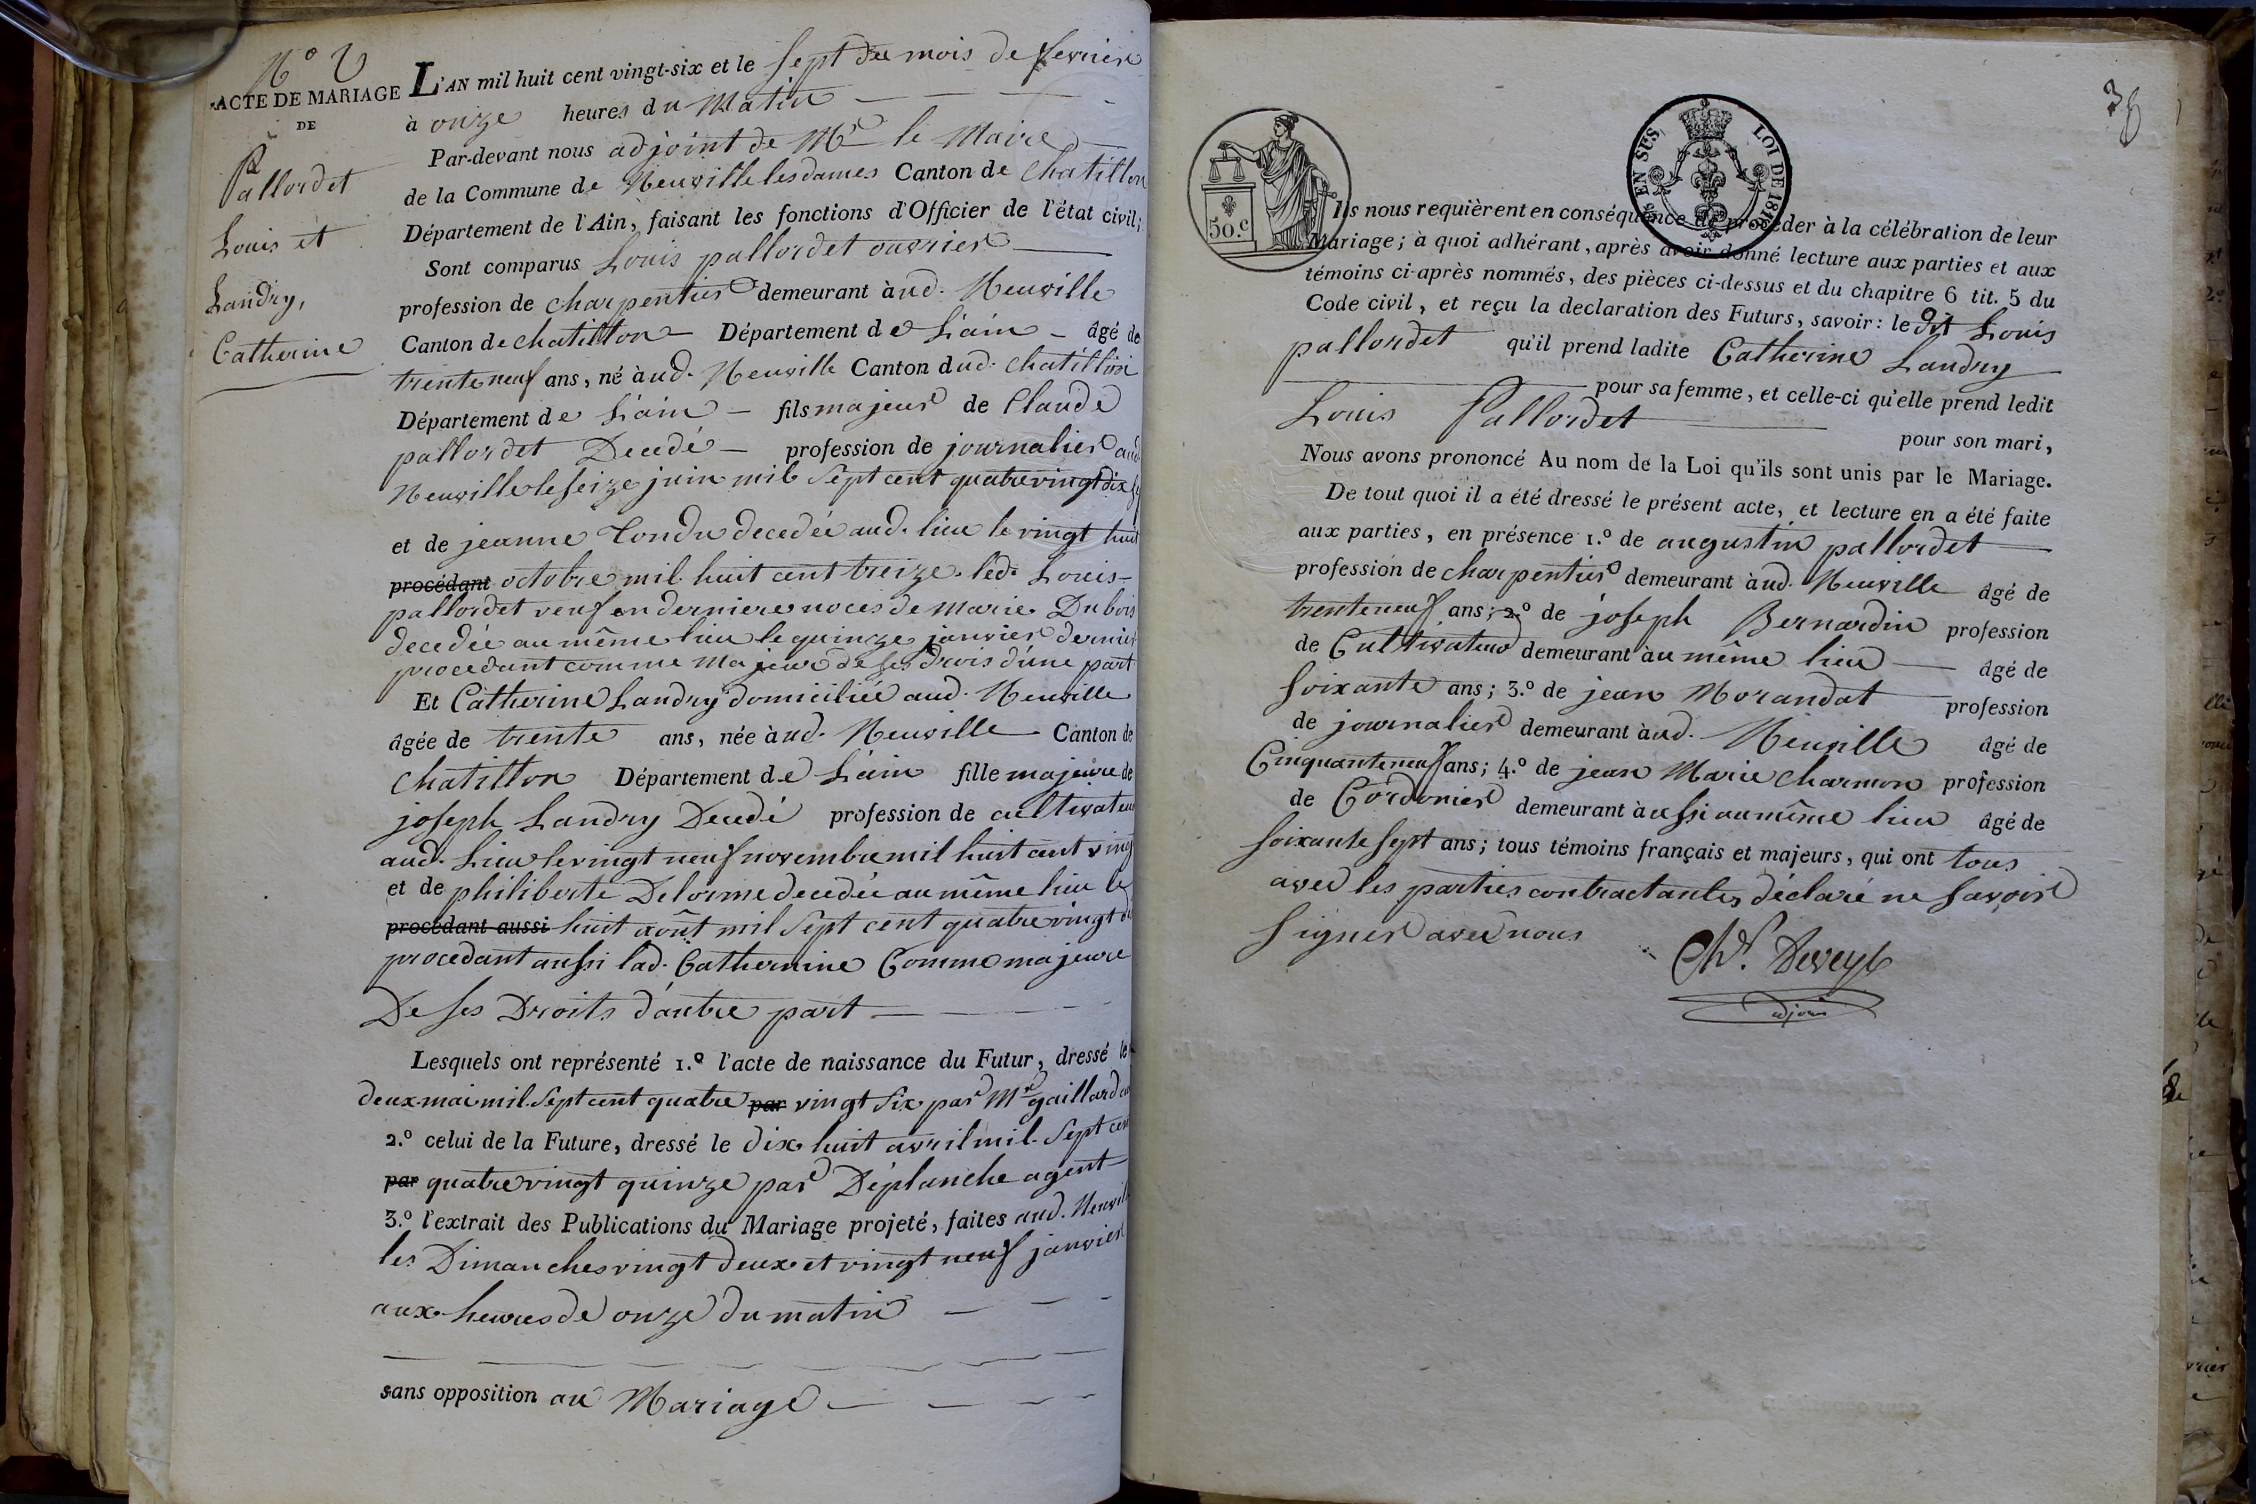 N° 2
ACTE DE MARIAGE
DE
Pallordet
Louis et
Landry,
Catherine
L'AN mil huit cent vingt-six et le sept du mois de fevrier
à onze heures du Matin
Par-devant nous adjoint de Mr le Maire
de la Commune de Neuville les dames Canton de Chatillon
Département de l'Ain, faisant les fonctions d'Officier de l'état civil;
Sont comparus Louis pallordet ouvrier
profession de charpentier demeurant à ud. Neuville
Canton de chatillon Département de L'ain âgé de
trente neuf ans, né à ud. Neuville Canton dud. chatillon
Département de L'ain fils majeur de Claude
pallordet Decedé profession de journalier aud.
Neuville le seize juin mil sept cent quatre vingt dix
et de jeanne Tondu decedée aud. lieu le vingt huit
procédant octobre mil huit cent treize. led. Louis
pallordet veuf en derniere noces de Marie Dubois
decedée au même lieu le quinze janvier dernier
procedant comme majeur de ses drois d'une part
Et Catherine Landry domiciliée aud. Neuville
âgée de trente ans, née à ud. Neuville Canton de
chatillon Département de L'ain fille majeure de
joseph Landry Decedé profession de cultivateur
aud. Lieu le vingt neuf novembre mil huit cent vingt
et de philiberte Delorme decedée au même lieu le
procédant aussi huit août mil sept cent quatre vingt
procedant aussi lad. Catherine Comme majeure
De ses Droits d'autre part
Lesquels ont représenté 1.º l'acte de naissance du Futur, dressé le
deux mai mil sept cent quatre par vingt six par Mr gaillard
2.º celui de la Future, dressé le dix huit avril mil sept cent
par quatre vingt quinze par Déplanche agent
3.º l'extrait des Publications du Mariage projeté, faites aud. Neuville
les Dimanches vingt deux et vingt neuf janvier
aux heures de onze du matin
sans opposition au Mariage
38
50.c
EN SUS
LOI DE 1816
Ils nous requièrent en conséquence de procéder à la célébration de leur
Mariage; à quoi adhérant, après avoir donné lecture aux parties et aux
témoins ci-après nommés, des pièces ci-dessus et du chapitre 6 tit. 5 du
Code civil, et reçu la declaration des Futurs, savoir: le dit Louis
pallordet qu'il prend ladite Catherine Landry
pour sa femme, et celle-ci qu'elle prend ledit
Louis Pallordet
pour son mari,
Nous avons prononcé Au nom de la Loi qu'ils sont unis par le Mariage.
De tout quoi il a été dressé le présent acte, et lecture en a été faite
aux parties, en présence 1.º de augustin pallordet
profession de charpentier demeurant à ud. Neuville âgé de
trente neuf ans; 2.º de joseph Bernardin profession
de Cultivateur demeurant à u même lieu âgé de
soixante ans; 3.º de jean Morandat profession
de journalier demeurant à ud. Neuville âgé de
Cinquante neuf ans; 4.º de jean Marie Charmon profession
de Cordonier demeurant à ussi au même lieu âgé de
soixante sept ans; tous témoins français et majeurs, qui ont tous
avec les parties contractantes déclaré ne savoir
signer avec nous
adjoin